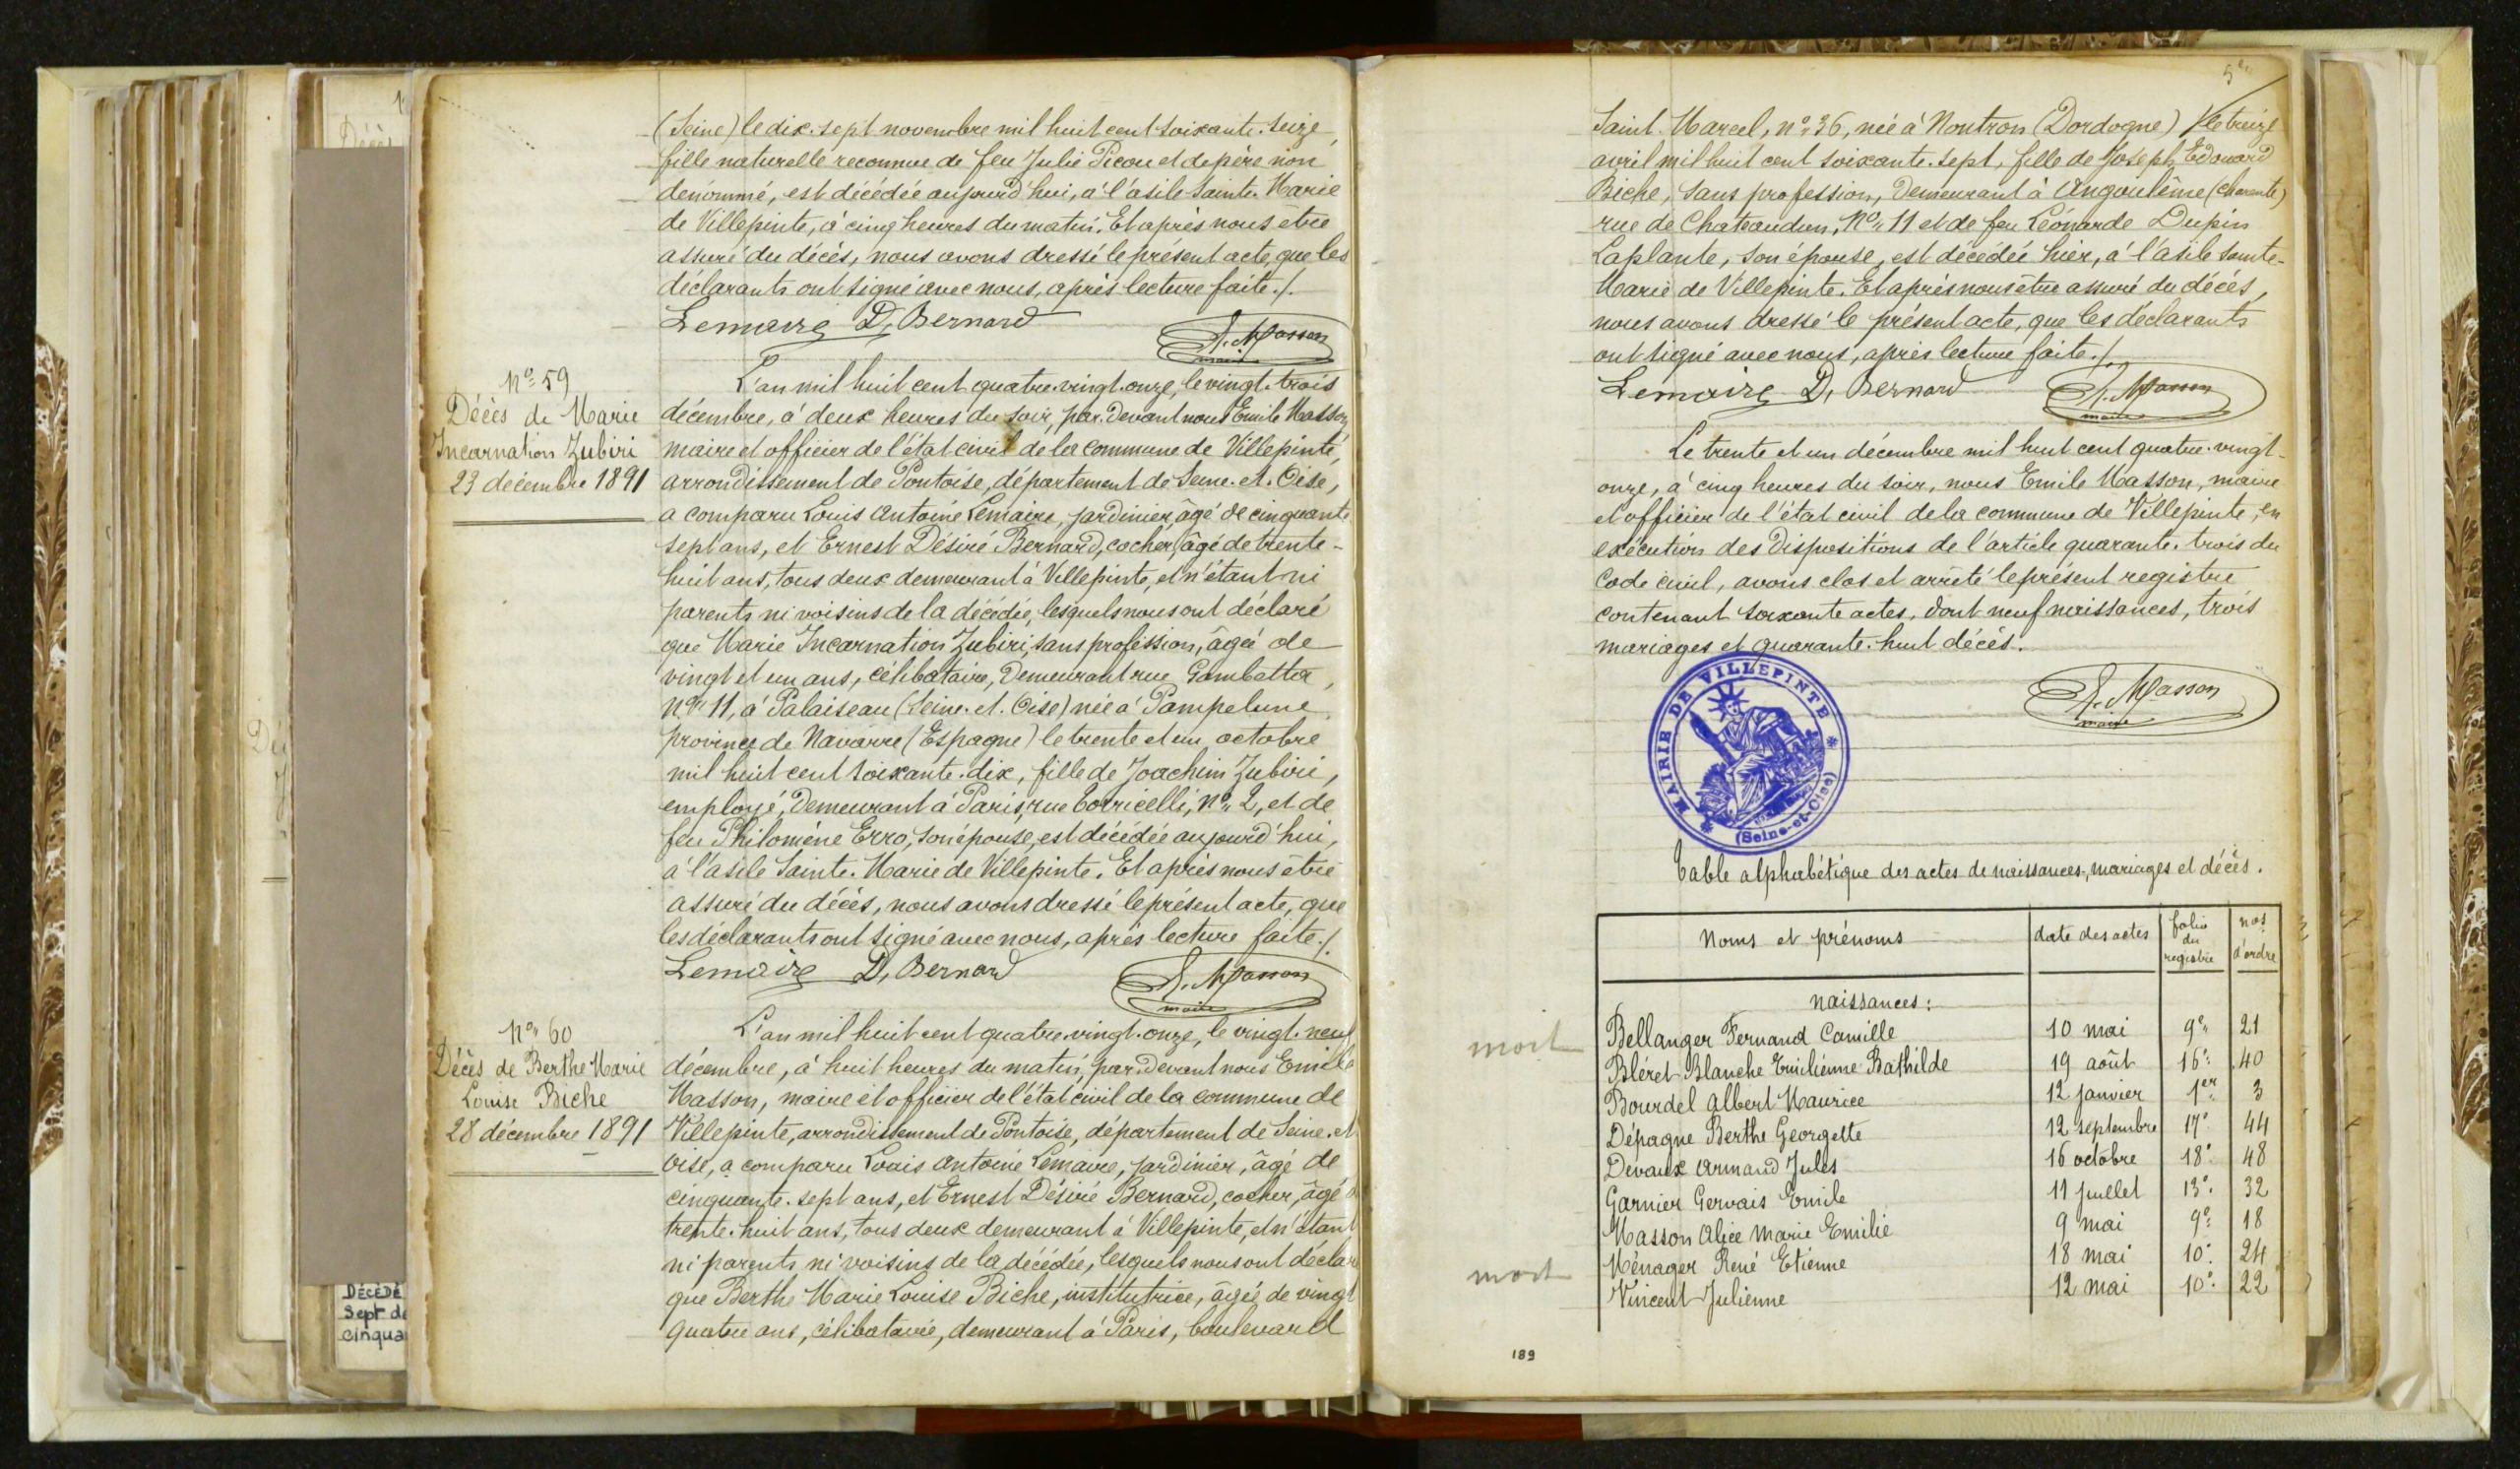 (Seine) le dix-sept novembre mil huit cent soixante-seize,
fille naturelle reconnue de feu Julie Picou et de père non
denommé, est décédée aujourd'hui, à l'asile Sainte-Marie
de Villepinte, à cinq heures du matin. Et après nous être
assuré du décès, nous avons dressé le présent acte, que les
déclarants ont signé avec nous, après lecture faite./.
Lemaire D. Bernard E. Masson
maire
No 59
Décès de Marie
Incarnation Zubiri
23 décembre 1891
L'an mil huit cent quatre-vingt-onze, le vingt-trois
décembre, à deux heures du soir, par-devant nous Emile Masson,
maire et officier de l'état civil de la commune de Villepinte,
arrondissement de Pontoise, département de Seine-et-Oise,
a comparu Louis Antoine Lemaire, jardinier, âgé de cinquante
sept ans, et Ernest Désiré Bernard, cocher, âgé de trente-
huit ans, tous deux demeurant à Villepinte, et n'étant ni
parents ni voisins de la décédée, lesquels nous ont déclaré
que Marie Incarnation Zubiri, sans profession, âgée de
vingt et un ans, célibataire, demeurant rue Gambetta,
No 11, à Palaiseau (Seine-et-Oise) née à Pampelune,
province de Navarre (Espagne) le trente et un octobre
mil huit cent soixante-dix, fille de Joachim Zubiri,
employé, demeurant à Paris, rue Torricelli, No 2, et de
feu Philomène Erro, son épouse, est décédée aujourd'hui,
à l'asile Sainte-Marie de Villepinte. Et après nous être
assuré du décès, nous avons dressé le présent acte, que
les déclarants ont signé avec nous, après lecture faite./.
Lemaire D. Bernard E. Masson
maire
No 60
Décès de Berthe Marie
Louise Biche
28 décembre 1891
L'an mil huit cent quatre-vingt-onze, le vingt-neuf
décembre, à huit heures du matin, par-devant nous Emile
Masson, maire et officier de l'état civil de la commune de
Villepinte, arrondissement de Pontoise, département de Seine-et
Oise, a comparu Louis Antoine Lemaire, jardinier, âgé de
cinquante-sept ans, et Ernest Désiré Bernard, cocher, âgé
trente-huit ans, tous deux demeurant à Villepinte, et n'étant
ni parents ni voisins de la décédée, lesquels nous ont déclaré
que Berthe Marie Louise Biche, institutrice, âgée de vingt
quatre ans, célibataire, demeurant à Paris, boulevard
DÉCÉDÉ
Sept de
cinqua
Saint-Marcel, no 36, née à Nontron (Dordogne) le treize
avril mil huit cent soixante-sept, fille de Joseph Edouard
Biche, sans profession, demeurant à Angoulême (Charente)
rue de Chateaudun, No 11 et de feu Léonarde Dupin
Laplante, son épouse, est décédée hier, à l'asile Sainte-
Marie de Villepinte. Et après nous être assuré du décès,
nous avons dressé le présent acte, que les déclarants
ont signé avec nous, après lecture faite./.
Lemaire D. Bernard E. Masson
maire
Le trente et un décembre mil huit cent quatre-vingt-
onze, à cinq heures du soir, nous Emile Masson, maire
et officier de l'état civil de la commune de Villepinte, en
exécution des dispositions de l'article quarante-trois du
Code civil, avons clos et arrêté le présent registre
contenant soixante actes, dont neuf naissances, trois
mariages et quarante-huit décès.
E. Masson
maire
MAIRIE DE VILLEPINTE
(Seine-et-Oise)
Table alphabétique des actes de naissances, mariages et décès.
Noms et prénoms date des actes folio du registre nos d'ordre
Naissances:
mort Bellanger Fernand Camille 10 mai 9e 21
Bléret Blanche Emilienne Bathilde 19 août 16e 40
Bourdel Albert Maurice 12 janvier 1er 3
Dépagne Berthe Georgette 12 septembre 17e 44
Devaux Armand Jules 16 octobre 18e 48
Garnier Gervais Emile 11 juillet 13e 32
Masson Alice Marie Emilie 9 mai 9e 18
mort Ménager René Etienne 18 mai 10e 24
Vincent Julienne 12 mai 10e 22
189